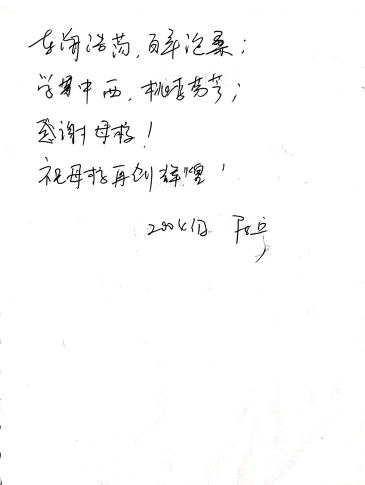 东海浩荡,百年沧桑;
学贯中西,桃李芬芳;
感谢母校!
祝母校再创辉煌!
2004